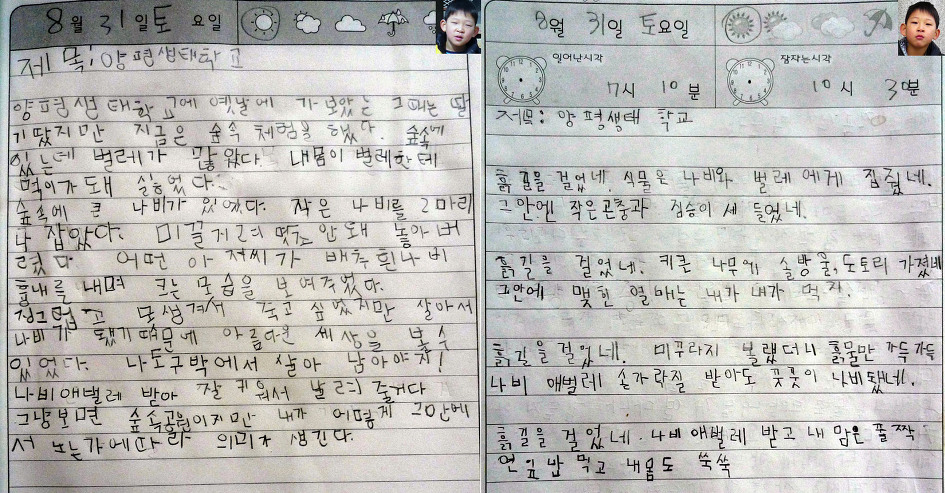 8월 31일 토요일
제목: 양평생태학교
양평생태학교에 옛날에 가보았는 그때는 딸
기땄지만 지금은 숲속 체험을 했다. 숲속에
있는데 벌레가 많았다. 내몸이 벌레한테
먹이가 돼 싫었다.
숲속에 큰 나비가 있었다. 작은 나비를 2마리
나 잡았다. 미끌거려 안돼 놓아버
렸다. 어떤 아저씨가 배추흰나비
흉내를 내며 크는 모습을 보여주었다.
징그럽고 못생겨서 죽고 싶었지만 살아서
나비가 됐기때문에 아름다운 세상을 볼수
있었다. 나도구박에서 살아 남아야지!
나비애벌레 받아 잘 키워서 날려 줄거다
그냥보면 숲속공원이지만 내가 어떻게 그안에
서 노는가에따라 의미가 생긴다.
8월 31일 토요일
일어난시각
7시 10분
잠자는시각
10시 30분
제목: 양평생태 학교
흙길을 걸었네. 식물은 나비와 벌레에게 집줬네.
그안에 작은곤충과 짐승이 세 들었네.
흙길을 걸었네. 키큰 나무에 솔방울, 도토리 가졌네
그안에 맺힌 열매는 내가 내가 먹지.
흙길을 걸었네. 미꾸라지 볼랬더니 흙물만 가득가득
나비 애벌레 손가락질 받아도 꿋꿋이 나비됐네.
흙길을 걸었네. 나비애벌레 받고 내 맘은 폴짝
연잎밥 먹고 내몸도 쑥쑥